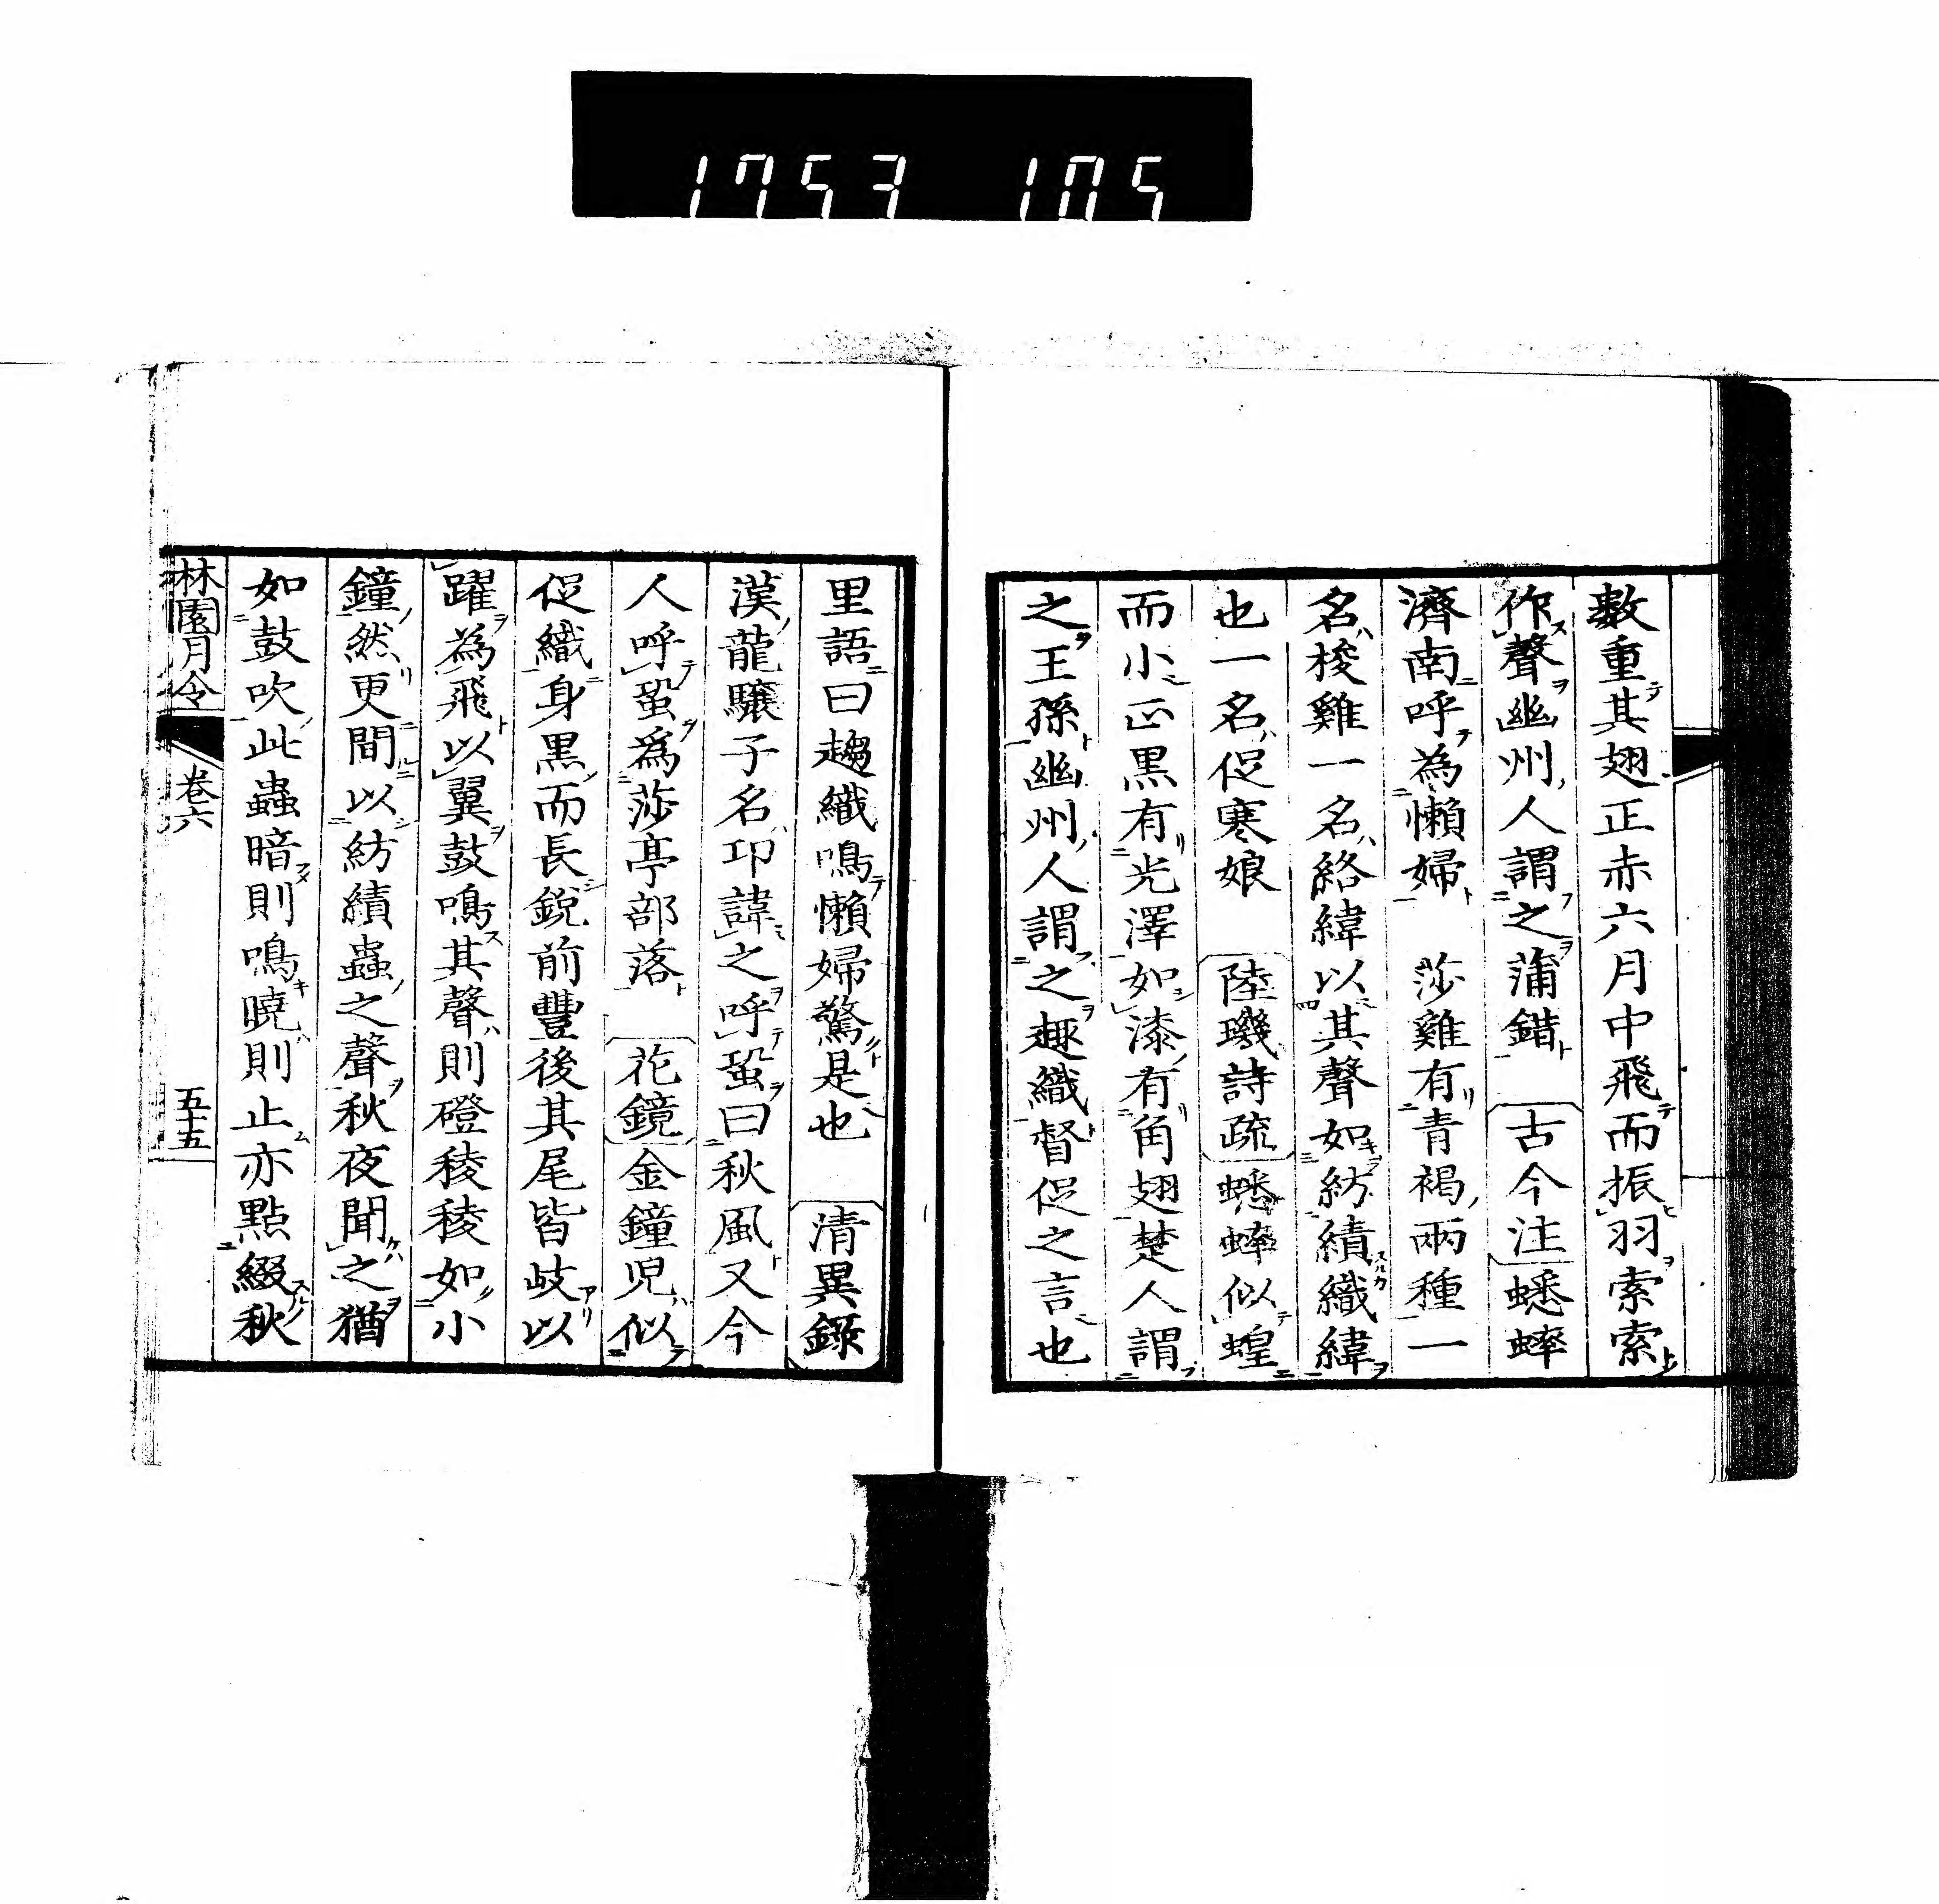 1753 105
數重其翅正赤六月中飛而振羽索索
作聲幽州人謂之蒲錯 古今注 蟋蟀
濟南呼為懶婦 莎雞有青褐兩種一
名梭雞一名絡緯以其聲如紡績織緯
也一名促寒娘 陸璣詩疏 蟋蟀似蝗
而小正黒有光澤如漆有角翅楚人謂
之王孫幽州人謂之趣織督促之言也
里語曰趨織鳴懶婦驚是也 清異錄
漢龍驤子名卭諱之呼蛩曰秋風又今
人呼蛩為莎亭部落 花鏡 金鐘児似
促織身黒而長銳前豐後其尾皆歧以
躍為飛以翼鼓鳴其聲則磴稜稜如小
鐘然更間以紡績蟲之聲秋夜聞之猶
如鼓吹此蟲暗則鳴曉則止亦點綴秋
林園月令 卷六 五十五